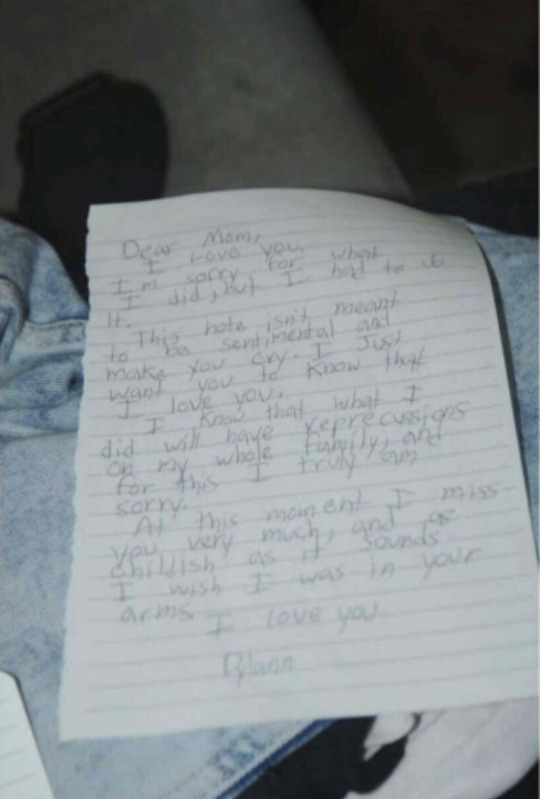 Dear Mom,
I Love you.
I'm sorry for what
I did, but I had to do
it.
This note isn't meant
to be sentimental and
make you cry. I Just
want you to know that
I love you.
I know that what I
did will have reprecussions
on my whole family, and
for this I truly am
sorry.
At this moment I miss
you very much, and as
childish as it sounds
I wish I was in your
arms.
I love you
Dylann